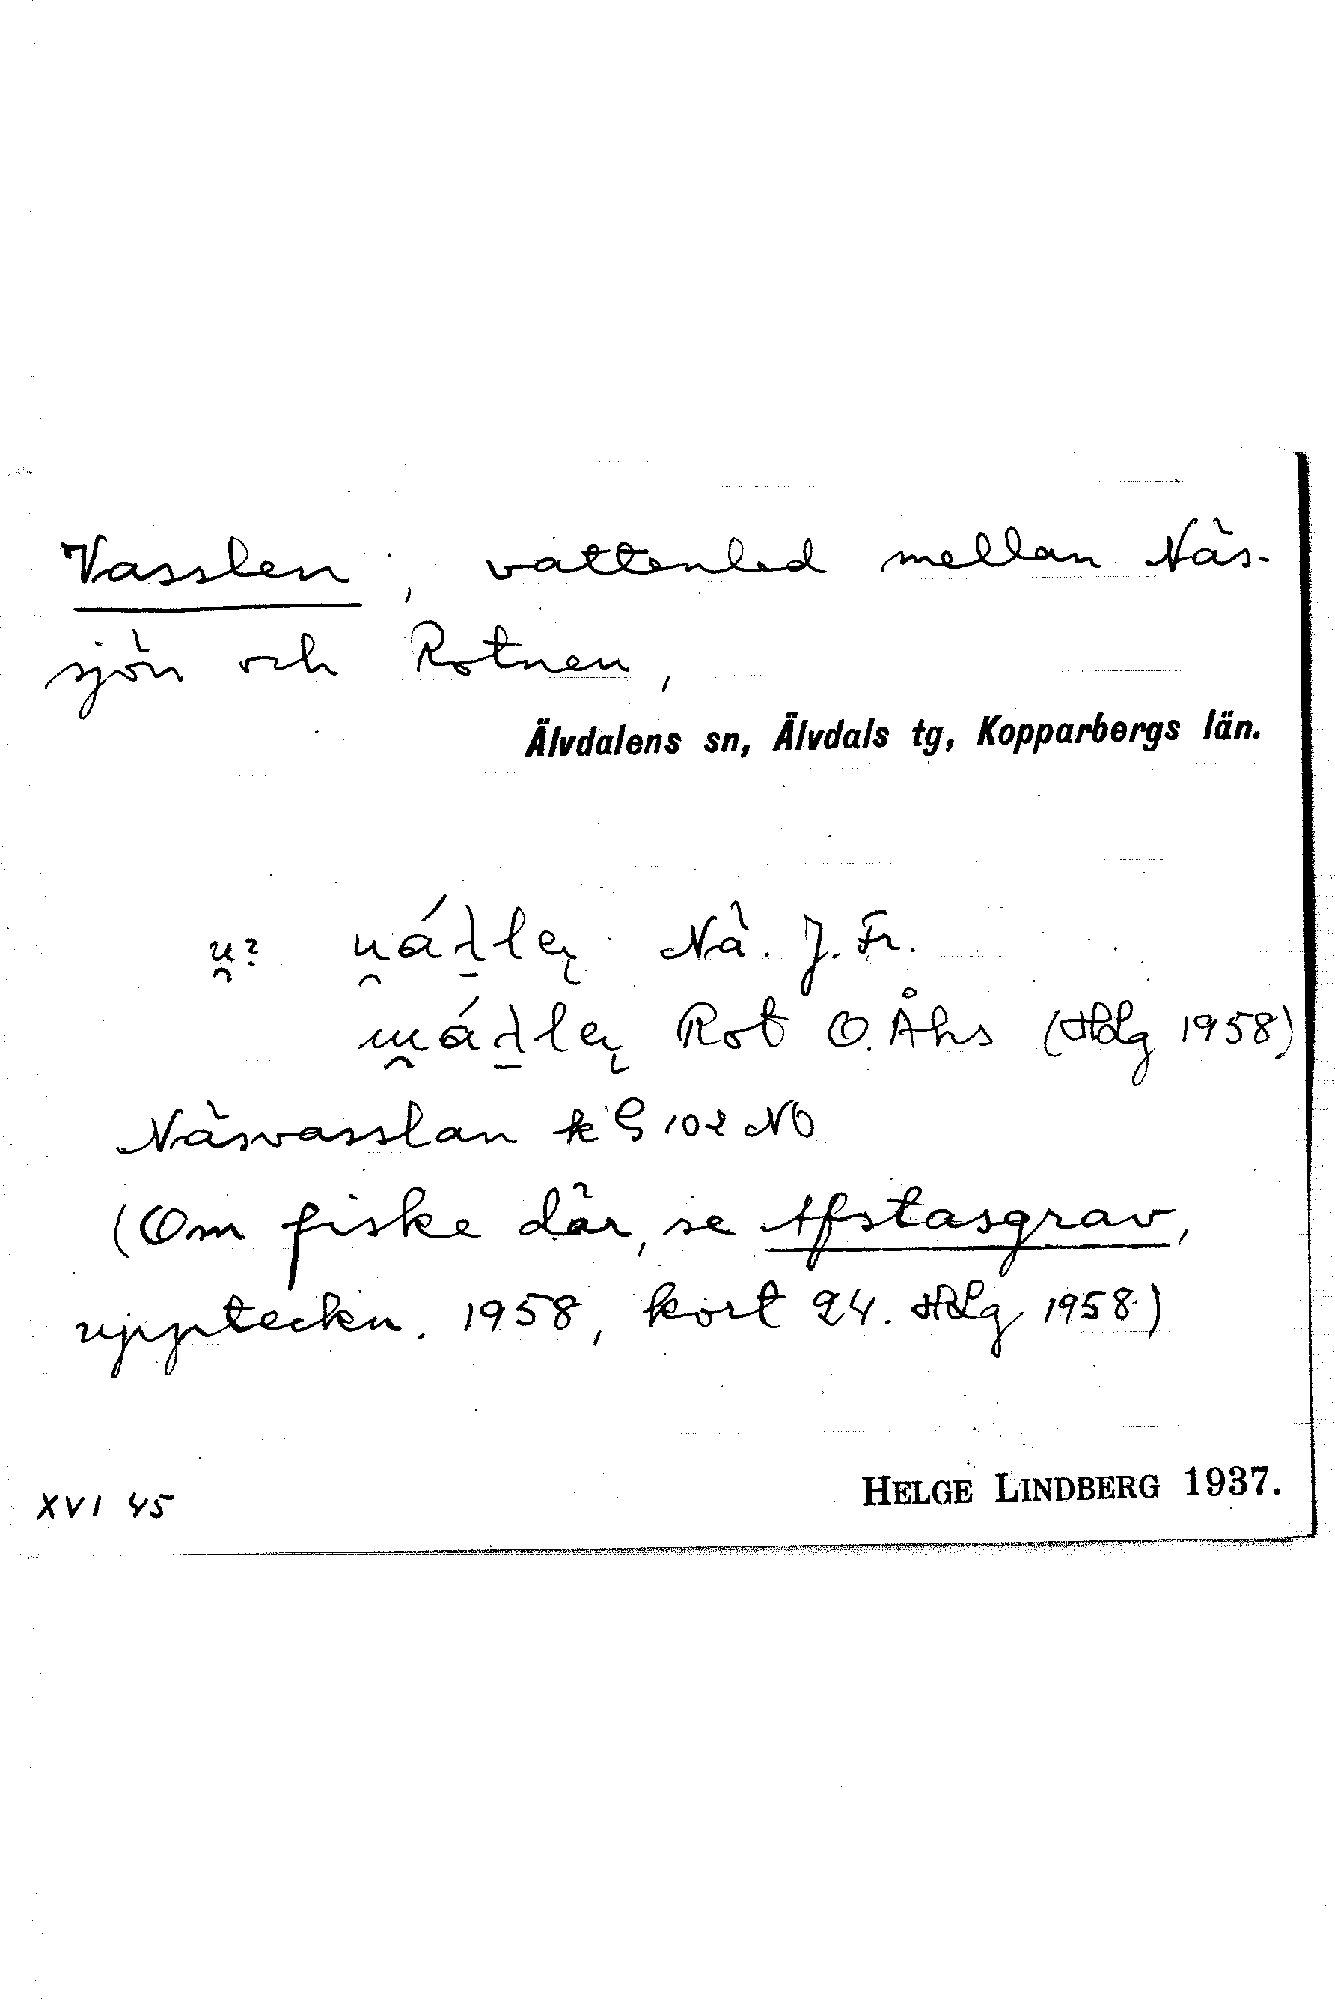 Vasslen, vattenled mellan Näs-
sjön och Rotnen,
Älvdalens sn, Älvdals tg, Kopparbergs län.
Nä. J. Fr.
Rot O. Åhs (HLg 1958)
Näsvasslan k G 102 NO
(Om fiske där, se Afstasgrav,
uppteckn. 1958, kort 24. HLg 1958)
XVI 45
HELGE LINDBERG 1937.